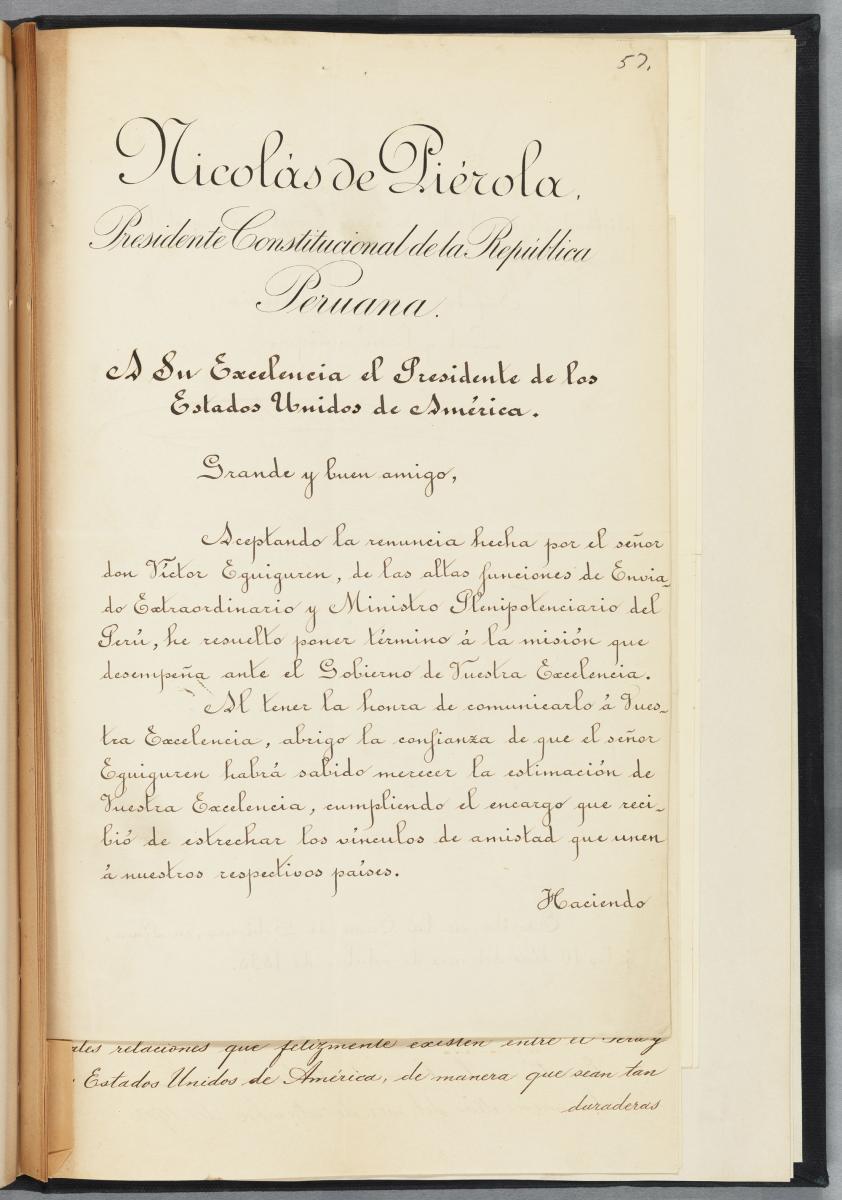 57.
Nicolás de Piérola.
Presidente Constitucional de la República
Peruana.
A Su Excelencia el Presidente de los
Estados Unidos de América.
Grande y buen amigo,
Aceptando la renuncia hecha por el señor
don Víctor Eguiguren, de las altas funciones de Envia-
do Extraordinario y Ministro Plenipotenciario del
Perú, he resuelto poner término á la misión que
desempeña ante el Gobierno de Vuestra Excelencia.
Al tener la honra de comunicarlo á Vues-
tra Excelencia, abrigo la confianza de que el señor
Eguiguren habrá sabido merecer la estimación de
Vuestra Excelencia, cumpliendo el encargo que reci-
bió de estrechar los vínculos de amistad que unen
á nuestros respectivos países.
Haciendo
relaciones que felizmente existen entre el Perú y
Estados Unidos de América, de manera que sean tan
duraderas